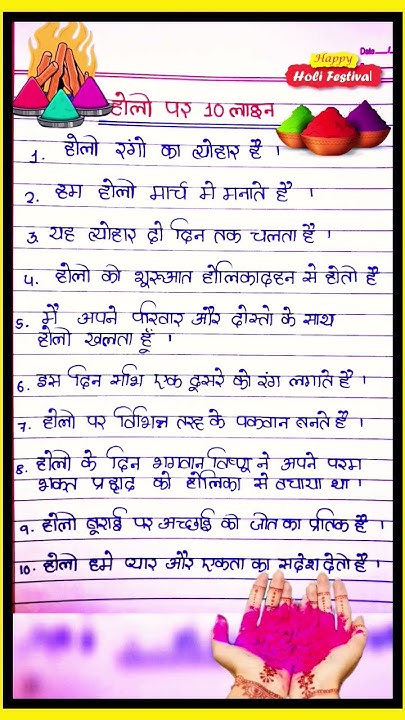 Date
Happy
Holi Festival
होली पर 10 लाइन
1. होली रंगो का त्योहार है ।
2. हम होली मार्च मे मनाते है ।
3. यह त्योहार दो दिन तक चलता है ।
4. होली की शुरुआत होलिकादहन से होती है
5. मै अपने परिवार और दोस्तो के साथ
होली खेलता हूँ ।
6. इस दिन सभि एक दूसरे को रंग लगाते है ।
7. होली पर विभिन्न तरह के पकवान बनते है ।
8. होली के दिन भगवान विष्णु ने अपने परम
भक्त प्रह्लाद को होलिका से बचाया था ।
9. होली बूराई पर अच्छाई की जीत का प्रतिक है ।
10. होली हमे प्यार और एकता का संदेश देती है ।